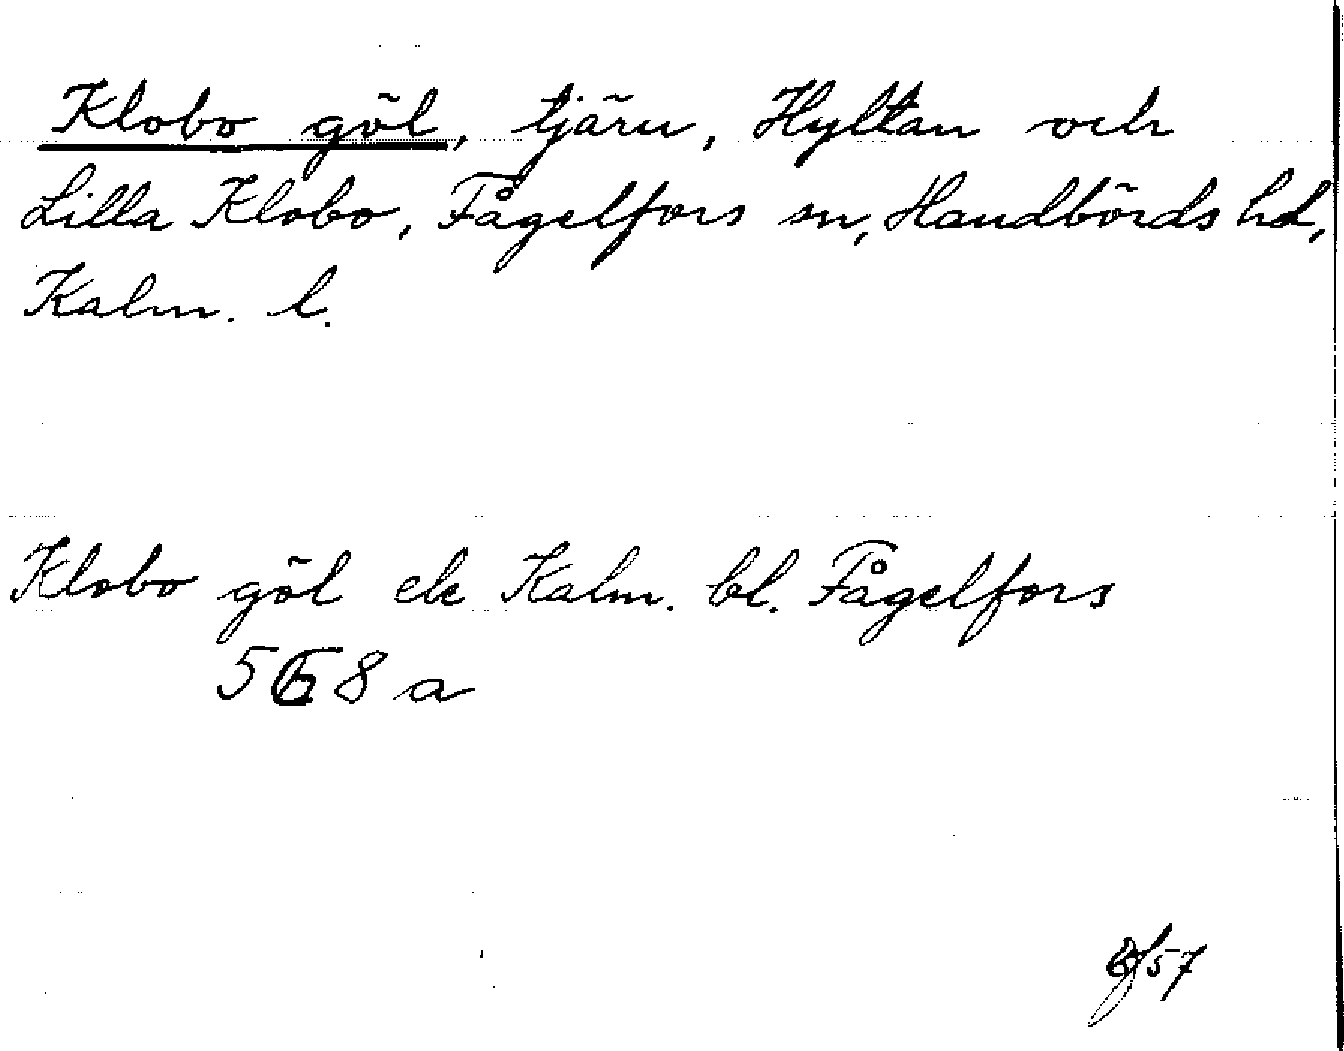 Klobo göl, tjärn, Hyltan och
Lilla Klobo, Fågelfors sn, Handbörds hd,
Kalm. l.
Klobo göl ek Kalm. bl. Fågelfors
a
57